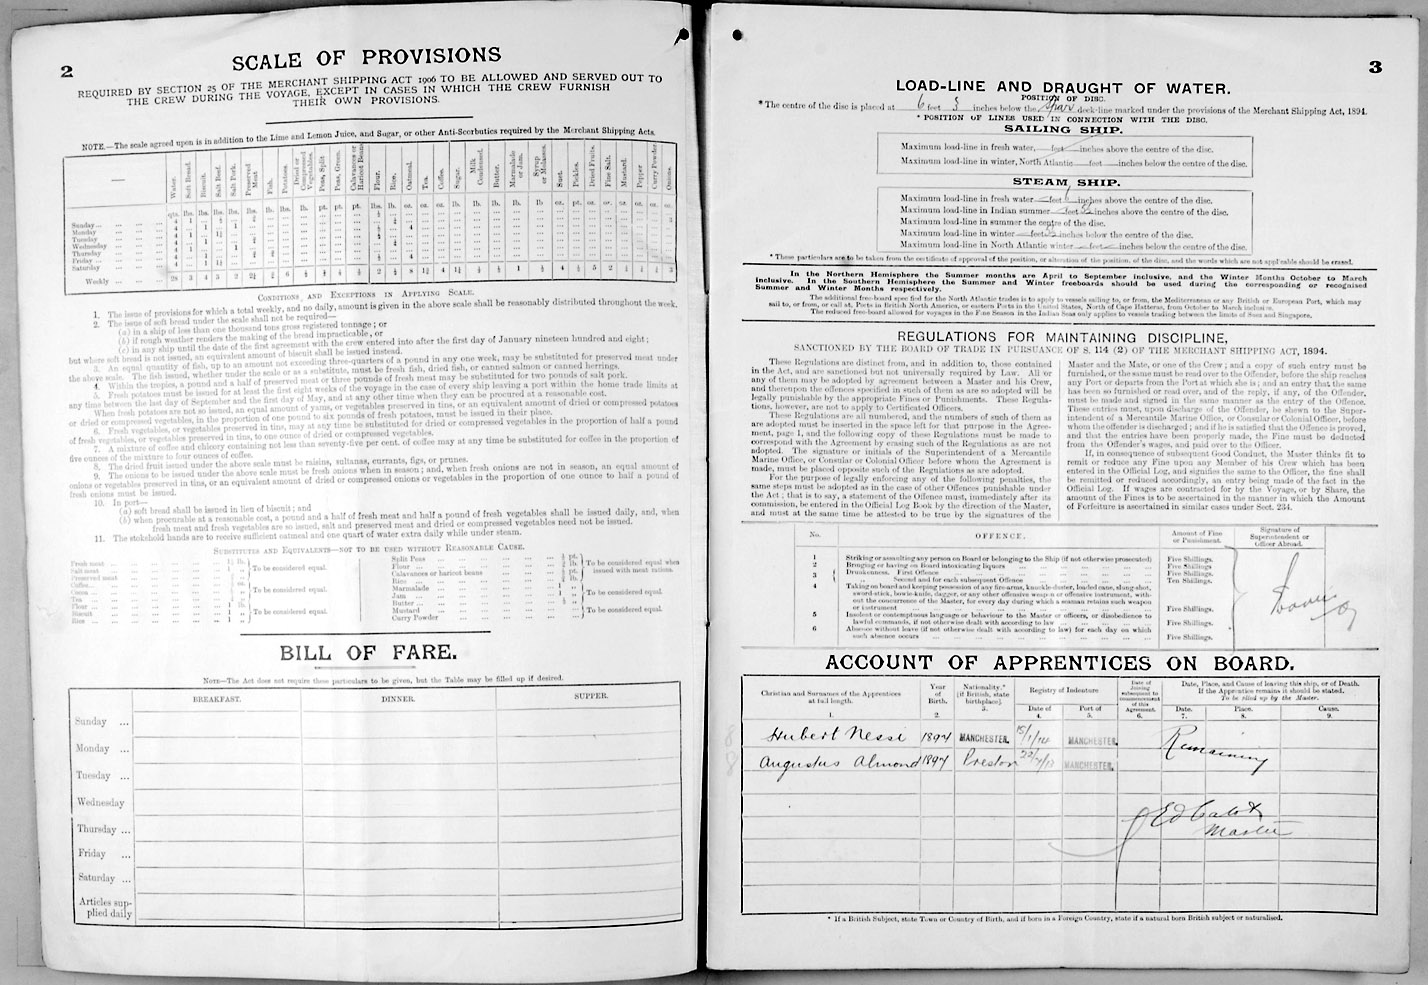 2
SCALE OF PROVISIONS
REQUIRED BY SECTION 25 OF THE MERCHANT SHIPPING ACT 1906 TO BE ALLOWED AND SERVED OUT TO
THE CREW DURING THE VOYAGE, EXCEPT IN CASES IN WHICH THE CREW FURNISH
THEIR OWN PROVISIONS.
NOTE.—The scale agreed upon is in addition to the Lime and Lemon Juice, and Sugar, or other Anti-Scorbutics required by the Merchant Shipping Acts.
Water. Soft Bread. Biscuit. Salt Beef. Salt Pork. Preserved Meat Fish. Potatoes. Dried or Compressed Vegetables. Peas, Split. Peas, Green. Calavances or Haricot Beans Flour. Rice. Oatmeal. Tea. Coffee. Sugar. Milk Condensed. Butter. Marmalade or Jam. Syrup or Molasses. Suet. Pickles. Dried Fruits. Fine Salt. Mustard. Pepper Curry Powder. Onions.
Sunday
Monday
Tuesday
Wednesday
Thursday
Friday
Saturday
Weekly
CONDITIONS AND EXCEPTIONS IN APPLYING SCALE.
1. The issue of provisions for which a total weekly, and no daily, amount is given in the above scale shall be reasonably distributed throughout the week.
2. The issue of soft bread under the scale shall not be required—
(a) in a ship of less than one thousand tons gross registered tonnage; or
(b) if rough weather renders the making of the bread impracticable, or
(c) in any ship until the date of the first agreement with the crew entered into after the first day of January nineteen hundred and eight;
but where soft bread is not issued, an equivalent amount of biscuit shall be issued instead.
3. An equal quantity of fish, up to an amount not exceeding three-quarters of a pound in any one week, may be substituted for preserved meat under
the above scale. The fish issued, whether under the scale or as a substitute, must be fresh fish, dried fish, or canned salmon or canned herrings.
4. Within the tropics, a pound and a half of preserved meat or three pounds of fresh meat may be substituted for two pounds of salt pork.
5. Fresh potatoes must be issued for at least the first eight weeks of the voyage in the case of every ship leaving a port within the home trade limits at
any time between the last day of September and the first day of May, and at any other time when they can be procured at a reasonable cost.
When fresh potatoes are not so issued, an equal amount of yams, or vegetables preserved in tins, or an equivalent amount of dried or compressed potatoes
or dried or compressed vegetables, in the proportion of one pound to six pounds of fresh potatoes, must be issued in their place.
6. Fresh vegetables, or vegetables preserved in tins, may at any time be substituted for dried or compressed vegetables in the proportion of half a pound
of fresh vegetables, or vegetables preserved in tins, to one ounce of dried or compressed vegetables.
7. A mixture of coffee and chicory containing not less than seventy-five per cent. of coffee may at any time be substituted for coffee in the proportion of
five ounces of the mixture to four ounces of coffee.
8. The dried fruit issued under the above scale must be raisins, sultanas, currants, figs, or prunes.
9. The onions to be issued under the above scale must be fresh onions when in season; and, when fresh onions are not in season, an equal amount of
onions or vegetables preserved in tins, or an equivalent amount of dried or compressed onions or vegetables in the proportion of one ounce to half a pound of
fresh onions must be issued.
10. In port—
(a) soft bread shall be issued in lieu of biscuit; and
(b) when procurable at a reasonable cost, a pound and a half of fresh meat and half a pound of fresh vegetables shall be issued daily, and, when
fresh meat and fresh vegetables are so issued, salt and preserved meat and dried or compressed vegetables need not be issued.
11. The stokehold hands are to receive sufficient oatmeal and one quart of water extra daily while under steam.
SUBSTITUTES AND EQUIVALENTS—NOT TO BE USED WITHOUT REASONABLE CAUSE.
Fresh meat
Salt meat
Preserved meat
To be considered equal.
Coffee
Cocoa
Tea
To be considered equal.
Flour
Biscuit
Rice
To be considered equal.
Split Peas
Flour
Calavances or haricot beans
Rice
To be considered equal when issued with meat rations.
Marmalade
Jam
Butter
To be considered equal.
Mustard
Curry Powder
To be considered equal.
BILL OF FARE.
NOTE—The Act does not require these particulars to be given, but the Table may be filled up if desired.
BREAKFAST. DINNER. SUPPER.
Sunday ...
Monday ...
Tuesday ...
Wednesday
Thursday ...
Friday ...
Saturday ...
Articles supplied daily
3
LOAD-LINE AND DRAUGHT OF WATER.
POSITION OF DISC.
* The centre of the disc is placed at 6 feet 3 inches below the Spar deck-line marked under the provisions of the Merchant Shipping Act, 1894.
* POSITION OF LINES USED IN CONNECTION WITH THE DISC.
SAILING SHIP.
Maximum load-line in fresh water, feet inches above the centre of the disc.
Maximum load-line in winter, North Atlantic feet inches below the centre of the disc.
STEAM SHIP.
Maximum load-line in fresh water feet inches above the centre of the disc.
Maximum load-line in Indian summer feet inches above the centre of the disc.
Maximum load-line in summer the centre of the disc.
Maximum load-line in winter feet inches below the centre of the disc.
Maximum load-line in North Atlantic winter feet inches below the centre of the disc.
* These particulars are to be taken from the certificate of approval of the position, or alteration of the position, of the disc, and the words which are not applicable should be erased.
In the Northern Hemisphere the Summer months are April to September inclusive, and the Winter Months October to March
inclusive. In the Southern Hemisphere the Summer and Winter freeboards should be used during the corresponding or recognised
Summer and Winter Months respectively.
The additional free-board specified for the North Atlantic trades is to apply to vessels sailing to, or from, the Mediterranean or any British or European Port, which may
sail to, or from, or call at, Ports in British North America, or eastern Ports in the United States, North of Cape Hatteras, from October to March inclusive.
The reduced free-board allowed for voyages in the Fine Season in the Indian Seas only applies to vessels trading between the limits of Suez and Singapore.
REGULATIONS FOR MAINTAINING DISCIPLINE,
SANCTIONED BY THE BOARD OF TRADE IN PURSUANCE OF S. 114 (2) OF THE MERCHANT SHIPPING ACT, 1894.
These Regulations are distinct from, and in addition to, those contained
in the Act, and are sanctioned but not universally required by Law. All or
any of them may be adopted by agreement between a Master and his Crew,
and thereupon the offences specified in such of them as so adopted will be
legally punishable by the appropriate Fines or Punishments. These Regulations,
however, are not to apply to Certificated Officers.
These Regulations are all numbered, and the numbers of such of them as
are adopted must be inserted in the space left for that purpose in the Agreement,
page 1, and the following copy of these Regulations must be made to
correspond with the Agreement by erasing such of the Regulations as are not
adopted. The signature or initials of the Superintendent of a Mercantile
Marine Office, or Consular Officer before whom the Agreement is
made, must be placed opposite such of the Regulations as are adopted.
For the purpose of legally enforcing any of the following penalties, the
same steps must be adopted as in the case of other Offences punishable under
the Act; that is to say, a statement of the Offence must, immediately after its
commission, be entered in the Official Log Book by the direction of the Master,
and must at the same time be attested to be true by the signatures of the
Master and the Mate, or one of the Crew; and a copy of such entry must be
furnished, or the same must be read over to the Offender, before the ship reaches
any Port or departs from the Port at which she is; and an entry that the same
has been so furnished or read over, and of the reply, if any, of the Offender,
must be made and signed in the same manner as the entry of the Offence.
These entries must, upon discharge of the Offender, be shown to the Superintendent
of a Mercantile Marine Office, or Consular or Colonial Officer, before
whom the offender is discharged; and if he is satisfied that the Offence is proved,
and that the entries have been properly made, the Fine must be deducted
from the Offender's wages, and paid over to the Officer.
If, in consequence of subsequent Good Conduct, the Master thinks fit to
remit or reduce any Fine upon any Member of his Crew which has been
entered in the Official Log, and signifies the same to the Officer, the fine shall
be remitted or reduced accordingly, an entry being made of the fact in the
Official Log. If wages are contracted for by the Voyage, or by Share, the
amount of the Fines is to be ascertained in the manner in which the Amount
of Forfeiture is ascertained in similar cases under Sect. 234.
No. OFFENCE. Amount of Fine or Punishment. Signature of Superintendent or Officer Abroad.
1 Striking or assaulting any person on Board or belonging to the Ship (if not otherwise prosecuted) Five Shillings.
2 Bringing or having on Board intoxicating liquors Five Shillings.
3 Drunkenness. First Offence Five Shillings.
Second and for each subsequent Offence Ten Shillings.
4 Taking on board and keeping possession of any fire-arms, knuckle-duster, loaded cane, slung-shot,
sword-stick, bowie-knife, dagger, or any other offensive weapon or offensive instrument, without
the concurrence of the Master, for every day during which a seaman retains such weapon
or instrument Five Shillings.
5 Insolent or contemptuous language or behaviour to the Master or officers, or disobedience to
lawful commands, if not otherwise dealt with according to law Five Shillings.
6 Absence without leave (if not otherwise dealt with according to law) for each day on which
such absence occurs Five Shillings.
ACCOUNT OF APPRENTICES ON BOARD.
Christian and Surnames of the Apprentices at full length. Year of Birth. Nationality.* [if British, state birthplace]. Registry of Indenture Date of Joining subsequent to commencement of this Agreement. Date, Place, and Cause of leaving this ship, or of Death. If the Apprentice remains it should be stated. To be filled up by the Master.
Date of Port of Date. Place. Cause.
1. 2. 3. 4. 5. 6. 7. 8. 9.
Hubert Nesse 1897 MANCHESTER. 15/1/14 MANCHESTER. Remaining
Augustus Almond 1897 Preston MANCHESTER.
Master
* If a British Subject, state Town or Country of Birth, and if born in a Foreign Country, state if a natural born British subject or naturalised.